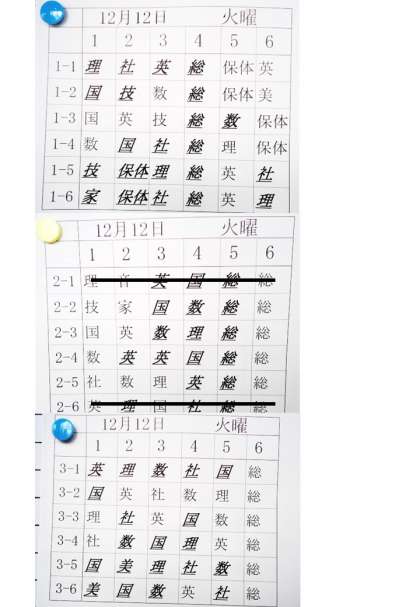 12月12日 火曜
1 2 3 4 5 6
1-1 理 社 英 総 保体 英
1-2 国 技 数 総 保体 美
1-3 国 英 技 総 数 保体
1-4 数 国 社 総 理 保体
1-5 技 保体 理 総 英 社
1-6 家 保体 社 総 英 理
12月12日 火曜
1 2 3 4 5 6
2-1 理 音 英 国 総 総
2-2 技 家 国 数 総 総
2-3 国 英 数 理 総 総
2-4 数 英 英 国 総 総
2-5 社 数 理 英 総 総
2-6 英 理 国 社 総 総
12月12日 火曜
1 2 3 4 5 6
3-1 英 理 数 社 国 総
3-2 国 英 社 数 理 総
3-3 理 社 英 国 数 総
3-4 社 数 国 理 英 総
3-5 国 美 理 社 数 総
3-6 美 国 数 英 社 総